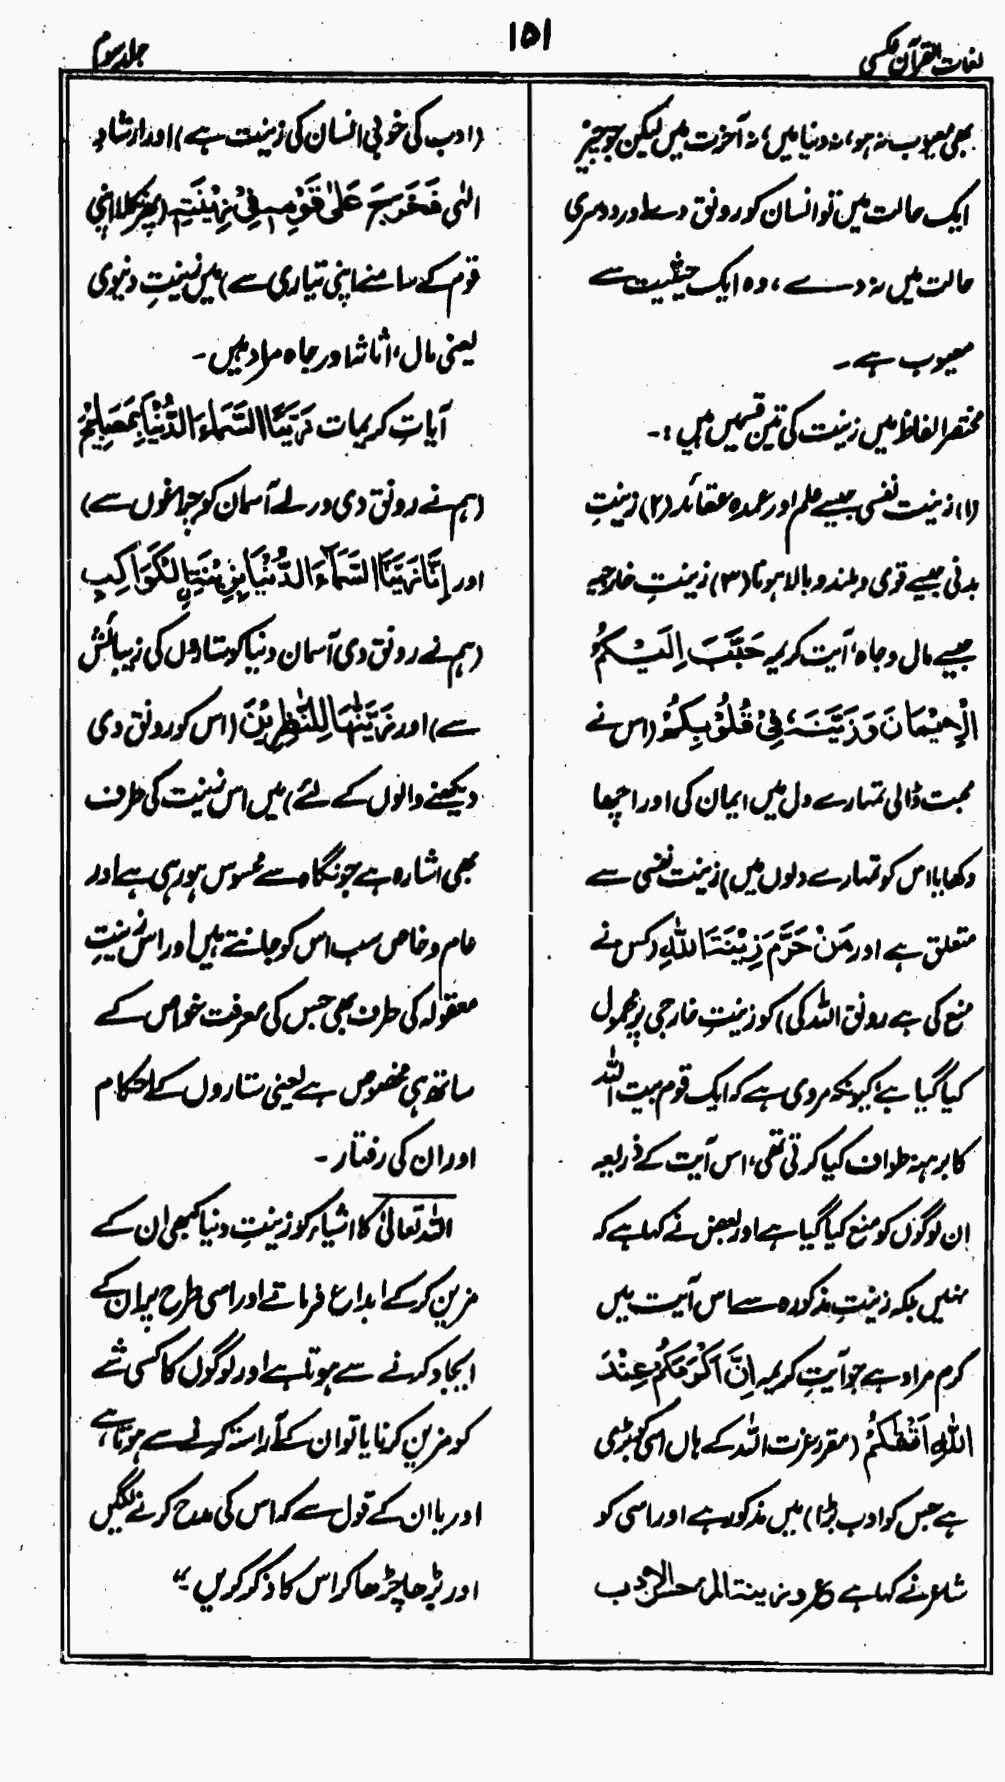 لغات القرآن عکسی
۱۵۱
جلد سوم
بھی معیوب نہ ہو، نہ دنیا میں، نہ آخرت میں لیکن جو چیز
ایک حالت میں تو انسان کو رونق دے اور دوسری
حالت میں نہ دے، وہ ایک حیثیت سے
معیوب ہے۔
مختصر الفاظ میں زینت کی تین قسمیں ہیں:۔
(۱) زینت نفسی جیسے علم اور عمدہ عقائد (۲) زینتِ
بدنی جیسے قوی و بلند و بالا ہونا (۳) زینتِ خارجیہ
جیسے مال و جاہ، آیت کریمہ حَبَّبَ اِلَیْکُمُ
الْاِیْمَانَ وَزَیَّنَہٗ فِیْ قُلُوْبِکُمْ (اس نے
محبت ڈالی تمہارے دل میں ایمان کی اور اچھا
دکھایا اس کو تمہارے دلوں میں) زینت نفسی سے
متعلق ہے اور مَنْ حَرَّمَ زِیْنَۃَ اللّٰہِ (کس نے
منع کی ہے رونق اللہ کی) کو زینتِ خارجی پر محمول
کیا گیا ہے؛ کیونکہ مروی ہے کہ ایک قوم بیت اللہ
کا برہنہ طواف کیا کرتی تھی، اس آیت کے ذریعہ
ان لوگوں کو منع کیا گیا ہے اور بعض نے کہا ہے کہ
نہیں بلکہ زینتِ مذکورہ سے اس آیت میں
کرم مراد ہے جو آیتِ کریمہ اِنَّ اَکْرَمَکُمْ عِنْدَ
اللّٰہِ اَتْقٰکُمْ (مقرر عزت اللہ کے ہاں اسی کو بڑی
ہے جس کو ادب بڑا) میں مذکور ہے اور اسی کو
شاعر نے کہا ہے ع وزینۃ المرء حسن الادب
(ادب کی خوبی انسان کی زینت ہے) اور ارشادِ
الٰہی فَخَرَجَ عَلٰی قَوْمِہٖ فِیْ زِیْنَتِہٖ (پھر نکلا اپنی
قوم کے سامنے اپنی تیاری سے) میں زینتِ دنیوی
یعنی مال، اثاثہ اور جاہ مراد ہیں۔
آیاتِ کریمات زَیَّنَّا السَّمَآءَ الدُّنْیَا بِمَصَابِیْحَ
(ہم نے رونق دی ورلے آسمان کو چراغوں سے)
اور اِنَّا زَیَّنَّا السَّمَآءَ الدُّنْیَا بِزِیْنَۃِ الْکَوَاکِبِ
(ہم نے رونق دی آسمان دنیا کو ستاروں کی زیبائش
سے) اور زَیَّنّٰھَا لِلنّٰظِرِیْنَ (اس کو رونق دی
دیکھنے والوں کے لئے) میں اس زینت کی طرف
بھی اشارہ ہے جو نگاہ سے محسوس ہو رہی ہے اور
عام و خاص سب اس کو جانتے ہیں اور اس زینتِ
معقولہ کی طرف بھی جس کی معرفت خواص کے
ساتھ ہی مخصوص ہے یعنی ستاروں کے احکام
اور ان کی رفتار۔
اللہ تعالیٰ کا اشیاء کو زینتِ دنیا کبھی ان کے
مزین کر کے ابداع فرماتے اور اسی طرح پر ان کے
ایجاد کرنے سے ہوتا ہے اور لوگوں کا کسی شے
کو مزین کرنا یا تو ان کے آراستہ کرنے سے ہوتا ہے،
اور یا ان کے قول سے کہ اس کی مدح کرنے لگیں
اور بڑھا چڑھا کر اس کا ذکر کریں ؎